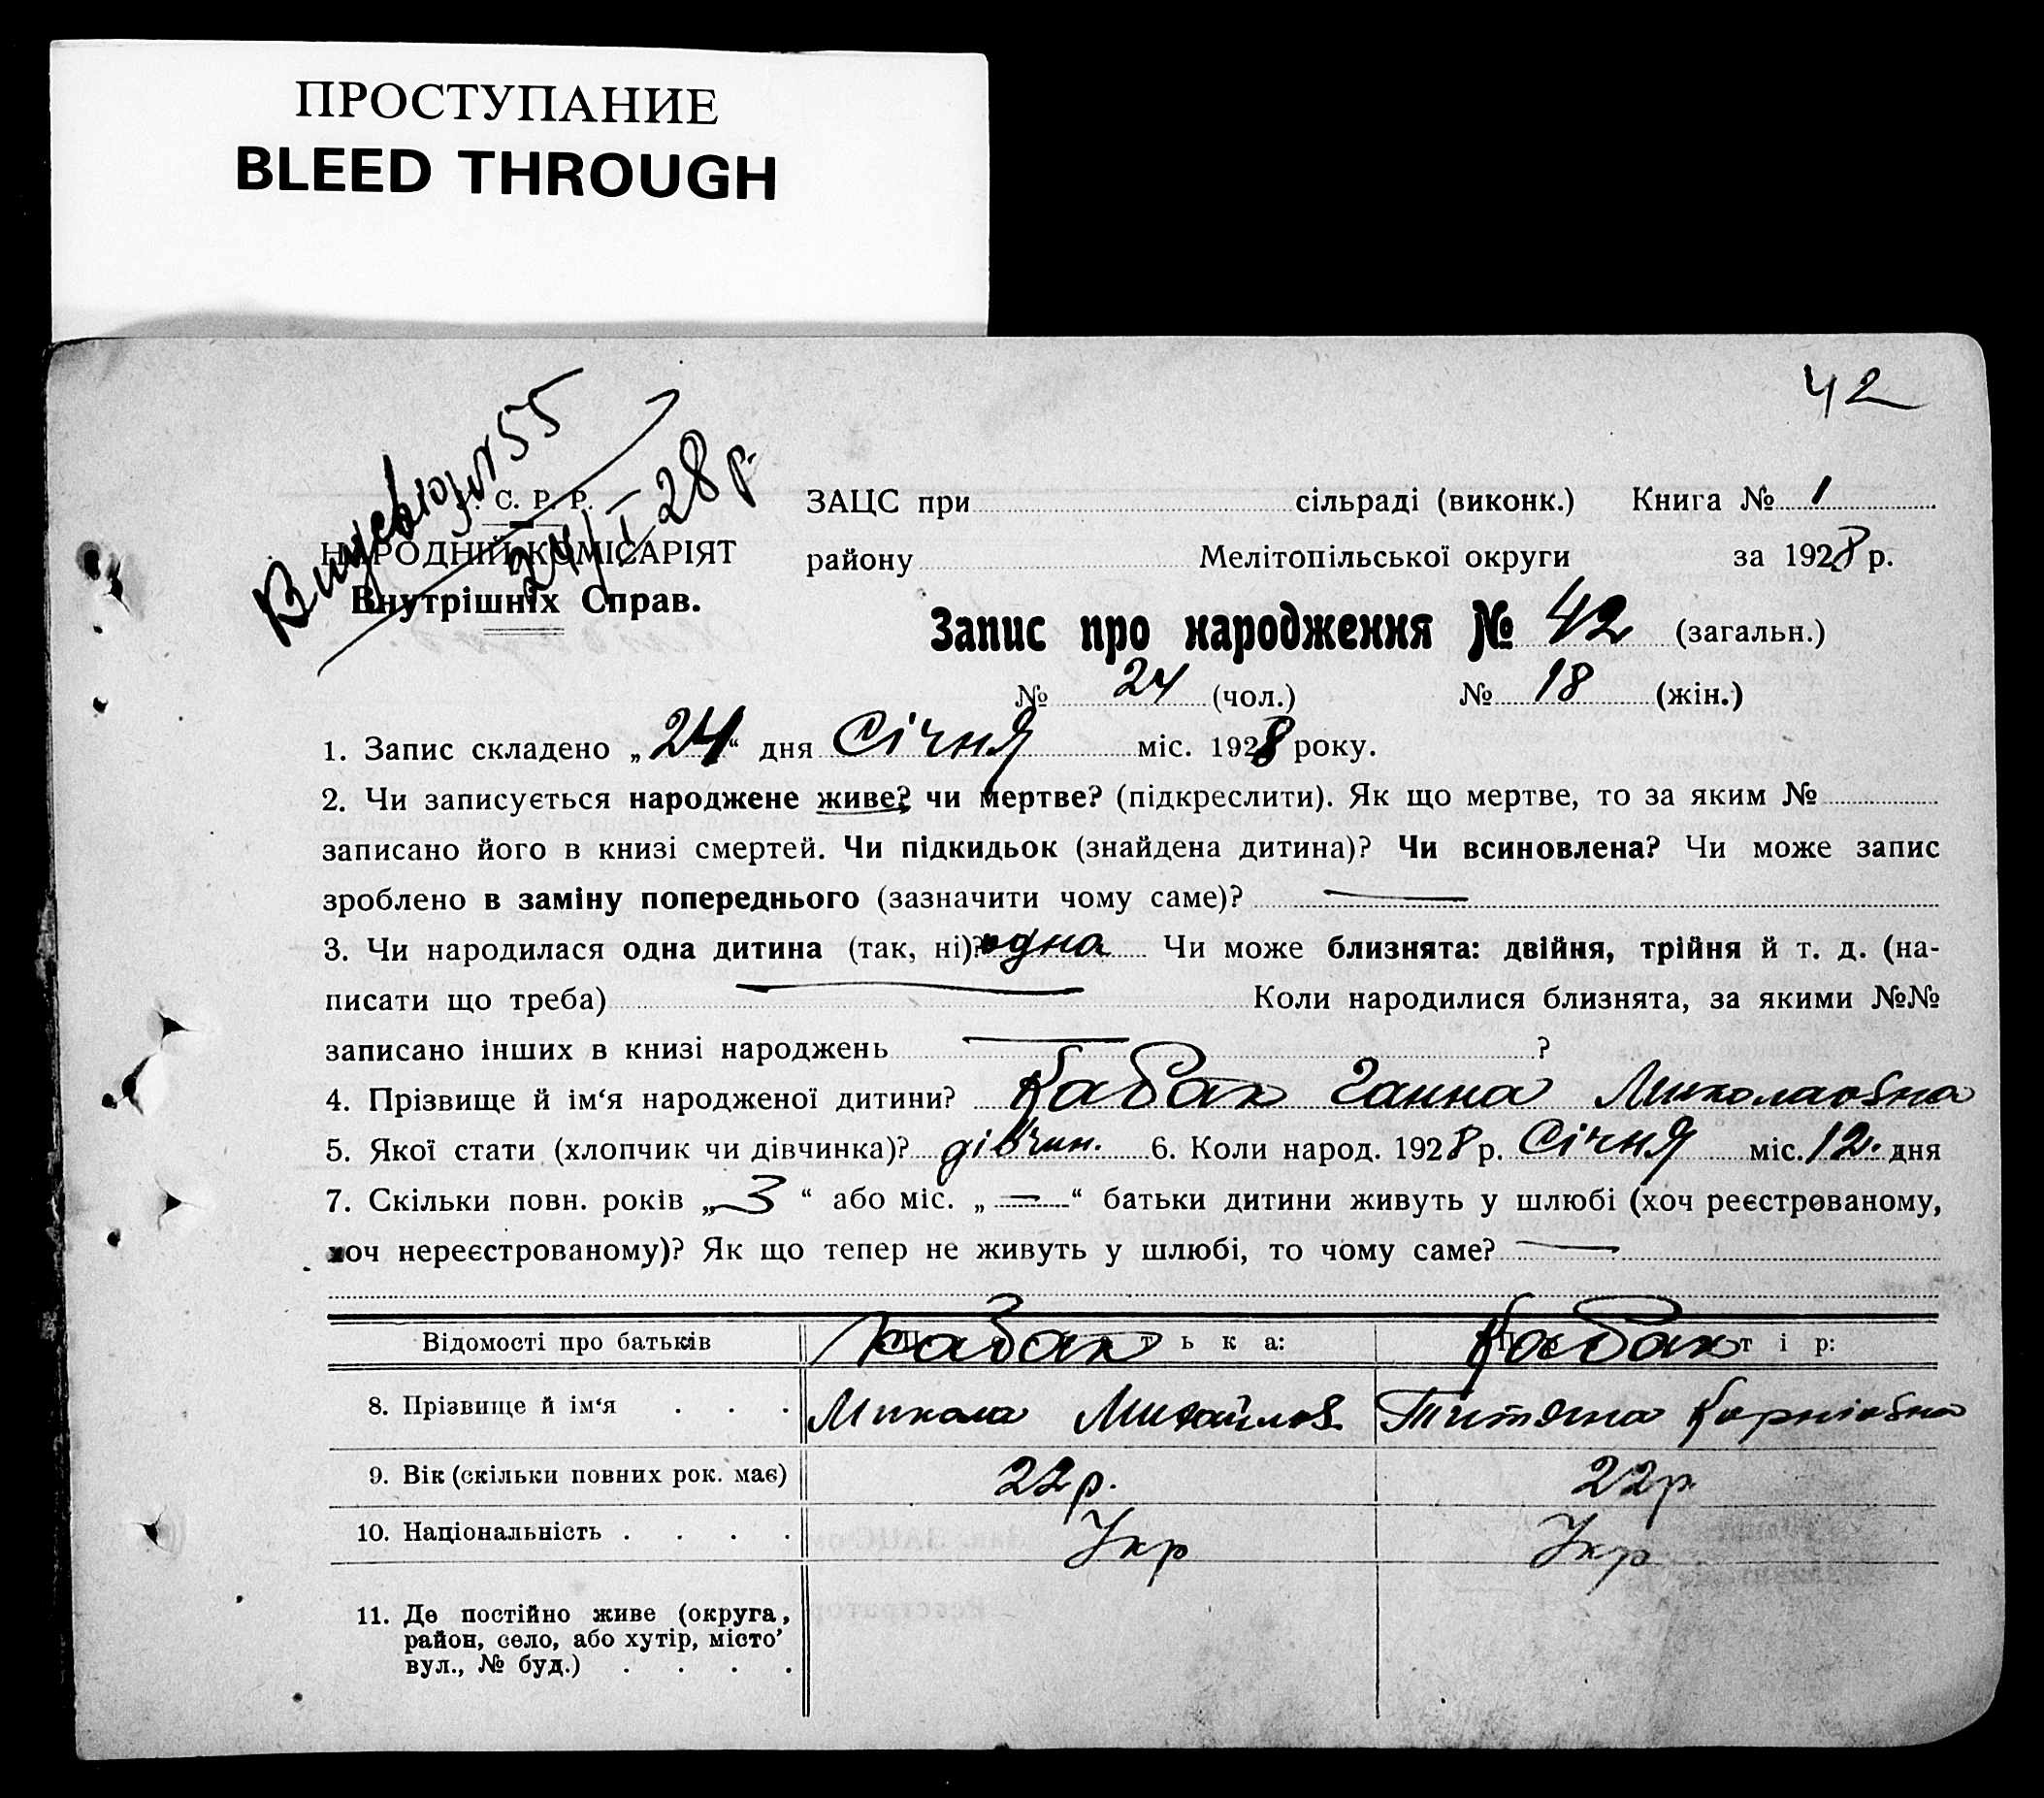 ПРОСТУПАНИЕ
BLEED THROUGH
42
55
24/I 28 р.
С. Р. Р.
НАРОДНИЙ КОМІСАРІЯТ
Внутрішніх Справ.
ЗАЦС при сільраді (виконк.) Книга № 1
району Мелітопільської округи за 1928 р.
Запис про народження № 42 (загальн.)
№ 24 (чол.) № 18 (жін.)
1. Запис складено „24“ дня Січня міс. 1928 року.
2. Чи записується народжене живе? чи мертве? (підкреслити). Як що мертве, то за яким №
записано його в книзі смертей. Чи підкидьок (знайдена дитина)? Чи всиновлена? Чи може запис
зроблено в заміну попереднього (зазначити чому саме)? —
3. Чи народилася одна дитина (так, ні)? одна Чи може близнята: двійня, трійня й т. д. (на-
писати що треба) — Коли народилися близнята, за якими №№
записано інших в книзі народжень — ?
4. Прізвище й ім‘я народженої дитини? Кабак Ганна Миколаовна
5. Якої стати (хлопчик чи дівчинка)? дівчин. 6. Коли народ. 1928 р. Січня міс. 12. дня
7. Скільки повн. років „3“ або міс. „—“ батьки дитини живуть у шлюбі (хоч реєстрованому,
хоч нереєстрованому)? Як що тепер не живуть у шлюбі, то чому саме? —
Відомості про батьків Кабак ька: Кабак тір:
8. Прізвище й ім‘я . . . Микола Михайлов Титяна Корніовна
9. Вік (скільки повних рок. має) 22 р. 22 р.
10. Національність . . . . Укр Укр
11. Де постійно живе (округа,
район, село, або хутір, місто,
вул., № буд.) . . . .